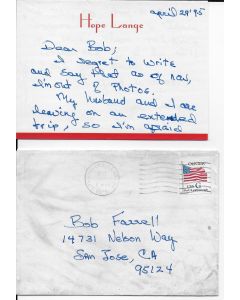 april 29 '95
Hope Lange
Dear Bob;
I regret to write
and say that as of now,
I'm out of photos.
My husband and I are
leaving on an extended
trip, so I'm afraid
USA
Bob Farrell
14731 Nelson Way
San Jose, CA
95124